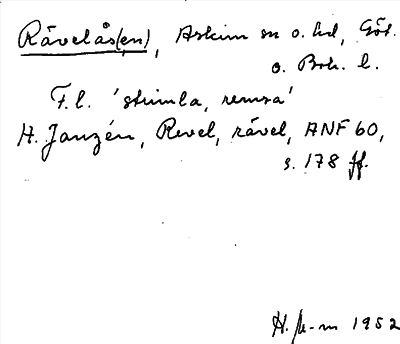 Rävelås(en), Askim sn o. hd, Göt.
o. Boh. l.
F.l. 'strimla, remsa'
H. Janzén, Revel, rävel, ANF 60,
s. 178 ff.
1952